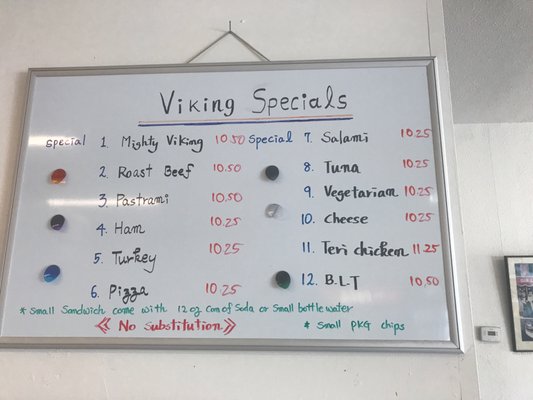 Viking Specials
Special 1. Mighty Viking 10.50
2. Roast Beef 10.50
3. Pastrami 10.50
4. Ham 10.25
5. Turkey 10.25
6. Pizza 10.25
Special 7. Salami 10.25
8. Tuna 10.25
9. Vegetarian 10.25
10. Cheese 10.25
11. Teri chicken 11.25
12. B.L.T 10.50
* Small Sandwich come with 12 oz Can of Soda or Small bottle water
<< No substitution >>
* Small PKG chips